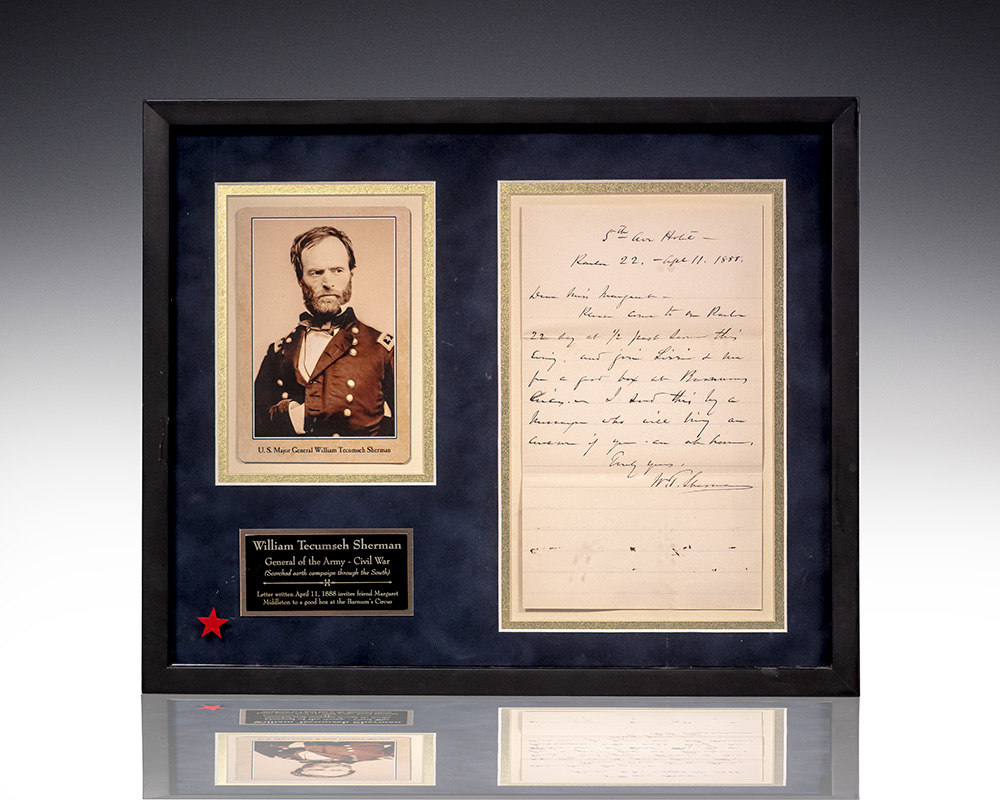 U. S. Major General William Tecumseh Sherman
William Tecumseh Sherman
General of the Army - Civil War
(Scorched earth campaign through the South)
Letter written April 11, 1888 invites friend Margaret
Middleton to a good box at the Barnum's Circus
5th Ave Hotel —
Parlor 22, — Apl 11. 1888.
Dear Miss Margaret —
Please come to our Parlor
22 by at 1/2 past Seven this
Evng. and join Lizzie & me
for a good box at Barnums
I send this by a
Messenger who will bring an
answer if you are at home,
Truly yours,
W. T. Sherman